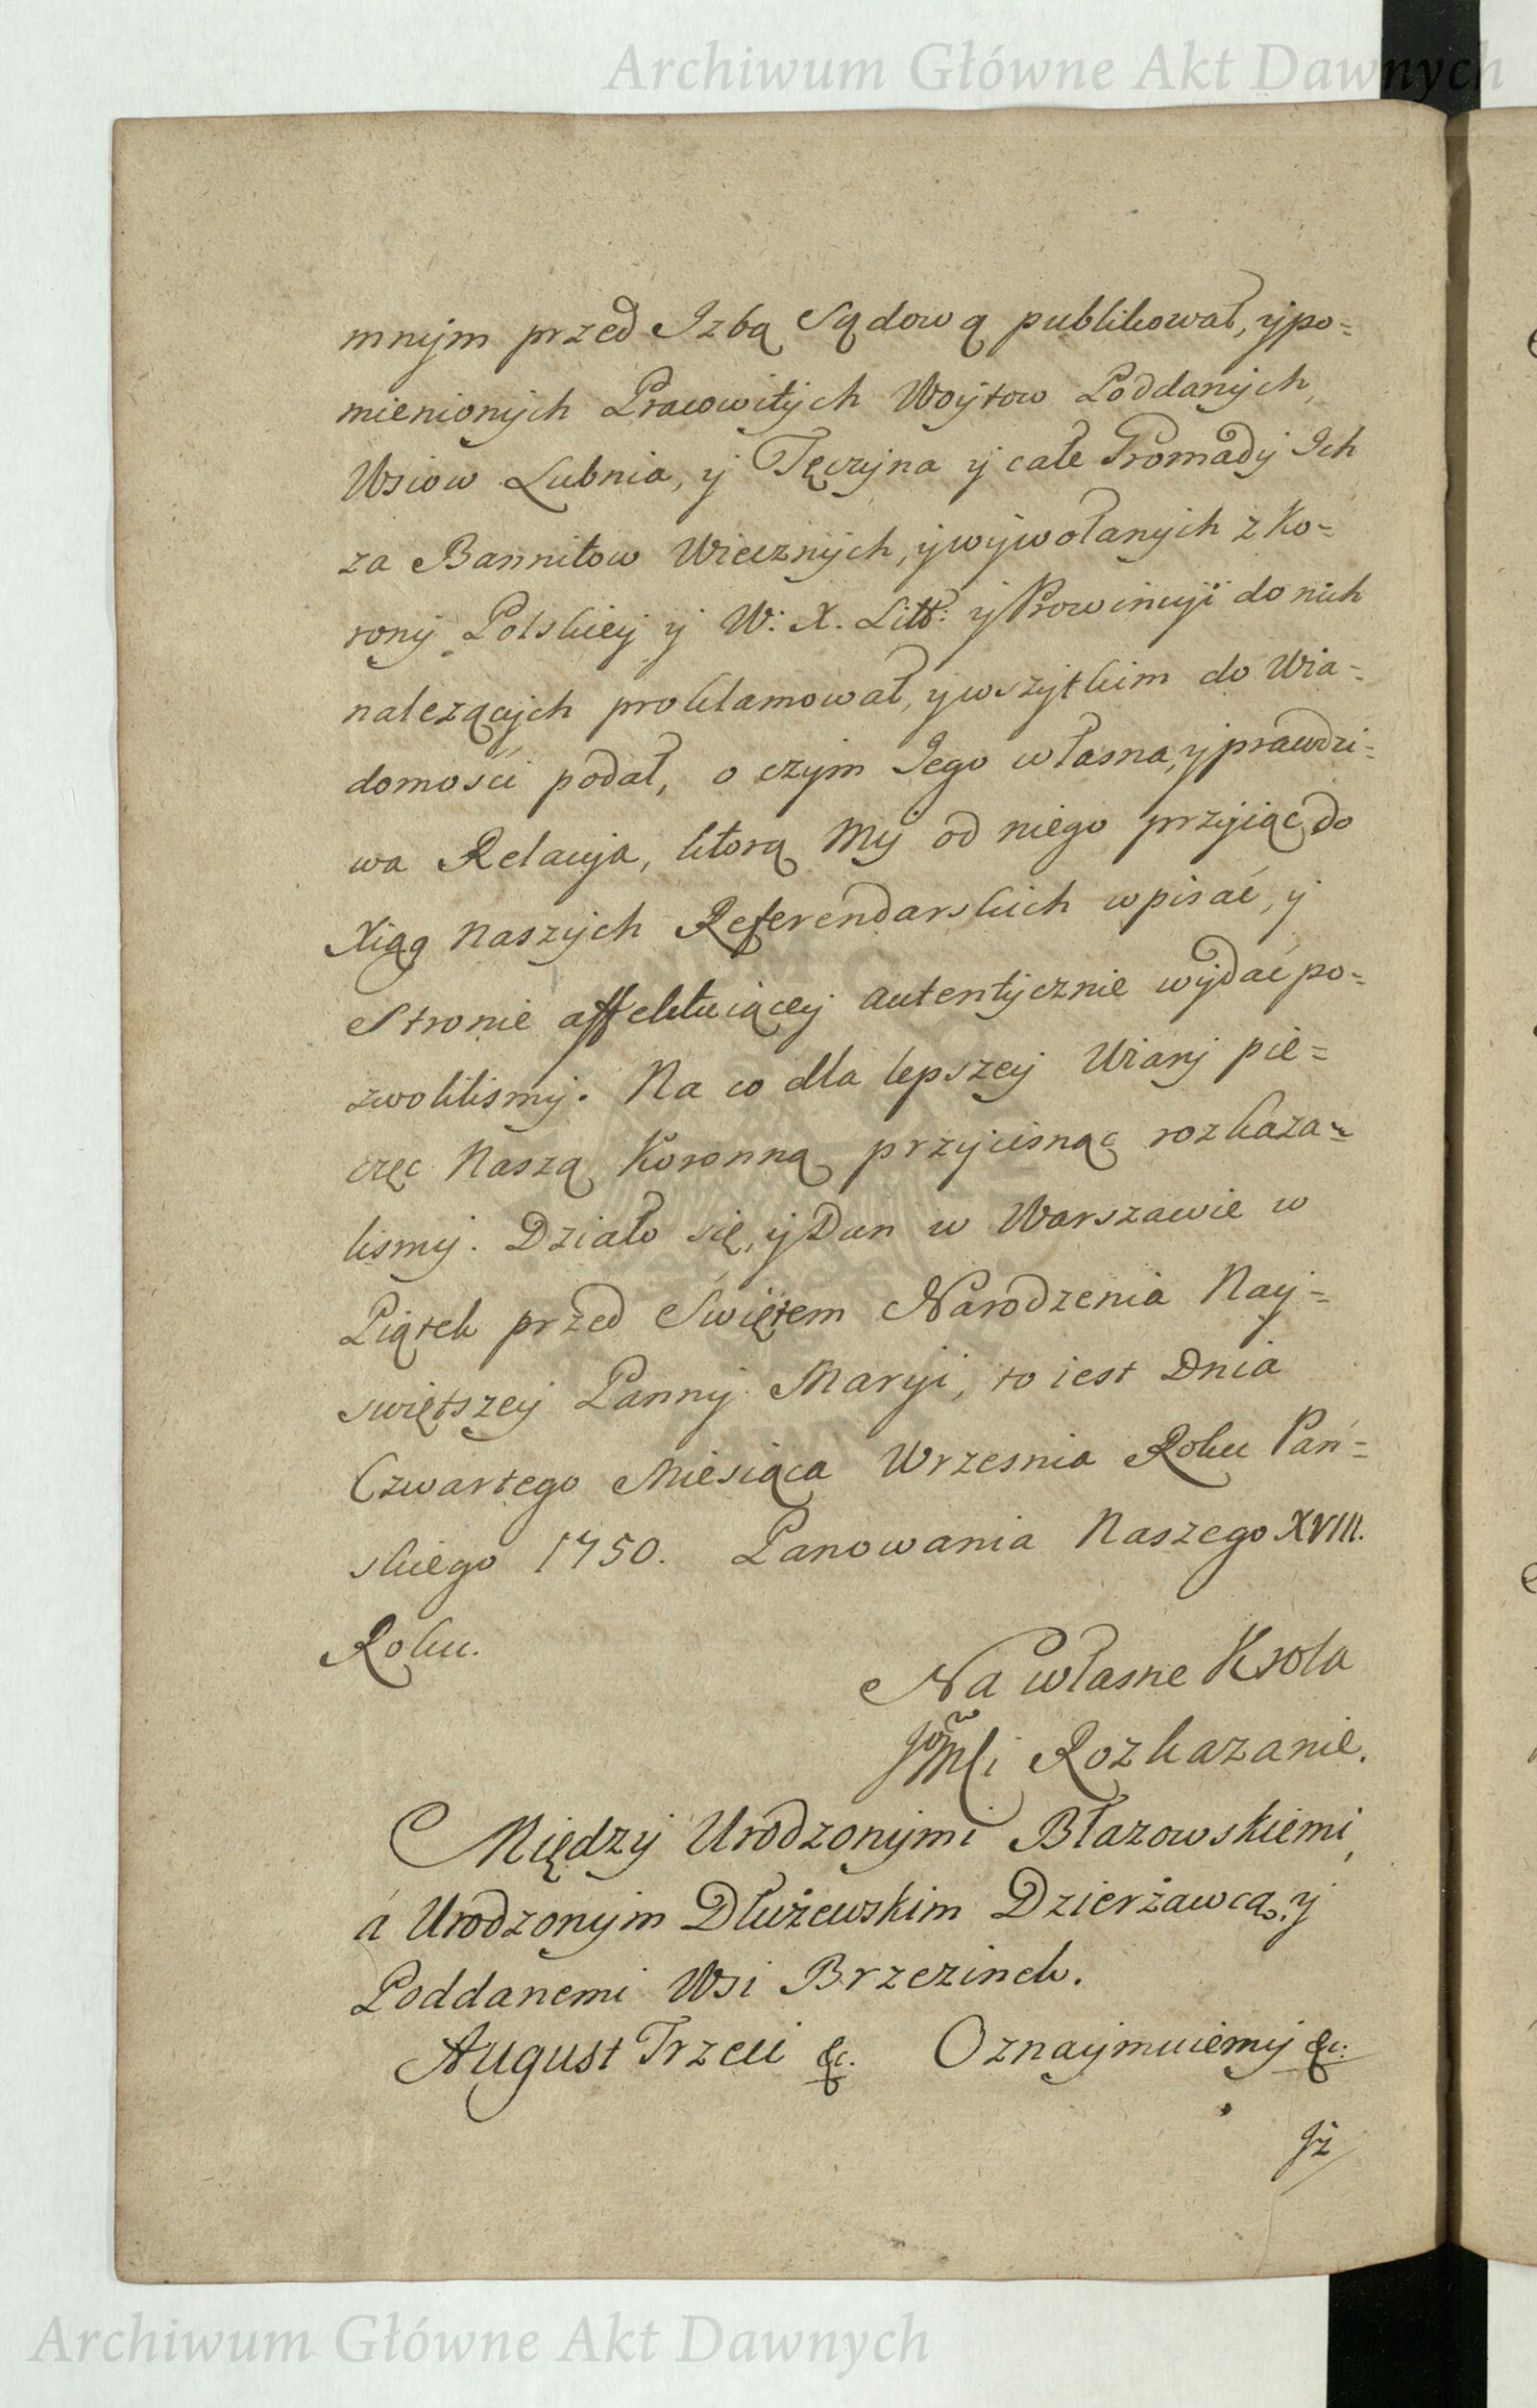 Archiwum Główne Akt Dawnych
mnym przed Izbą Sądową publikował, y po=
mienionych Pracowitych Woytow Poddanych,
Wsiow Lubnia, y Tęczyna y całe Gromady Ich
za Bannitow Wiecznych, y wywołanych z Ko=
rony Polskiey y W: X. Litt: y Prowincyi do nich
nalezących proklamował, y wszytkim do Wia=
domości podał, o czym Jego własna, y prawdzi=
wa Relacyja, ktorą My od niego przyiąc do
Xiąg Naszych Referendarskich wpisać, y
Stronie affektuiącey autentycznie wydać po=
zwolilismy. Na co dla lepszey Wiary pie=
częc Naszą Koronną przycisnąc rozkaza=
lismy. Działo się, y Dan w Warszawie w
Piątek przed Świętem Narodzenia Nay=
swiętszey Panny Maryi, to iest Dnia
Czwartego Miesiąca Wrzesnia Roku Pań=
skiego 1750. Panowania Naszego XVIII.
Roku.
Na własne Krola
Jomści Rozkazanie.
Między Urodzonymi Błazowskiemi,
á Urodzonym Dłużewskim Dzierżawcą, y
Poddanemi Wsi Brzezinek.
August Trzeci &c. Oznaymuiemy &c:
Jż
Archiwum Główne Akt Dawnych